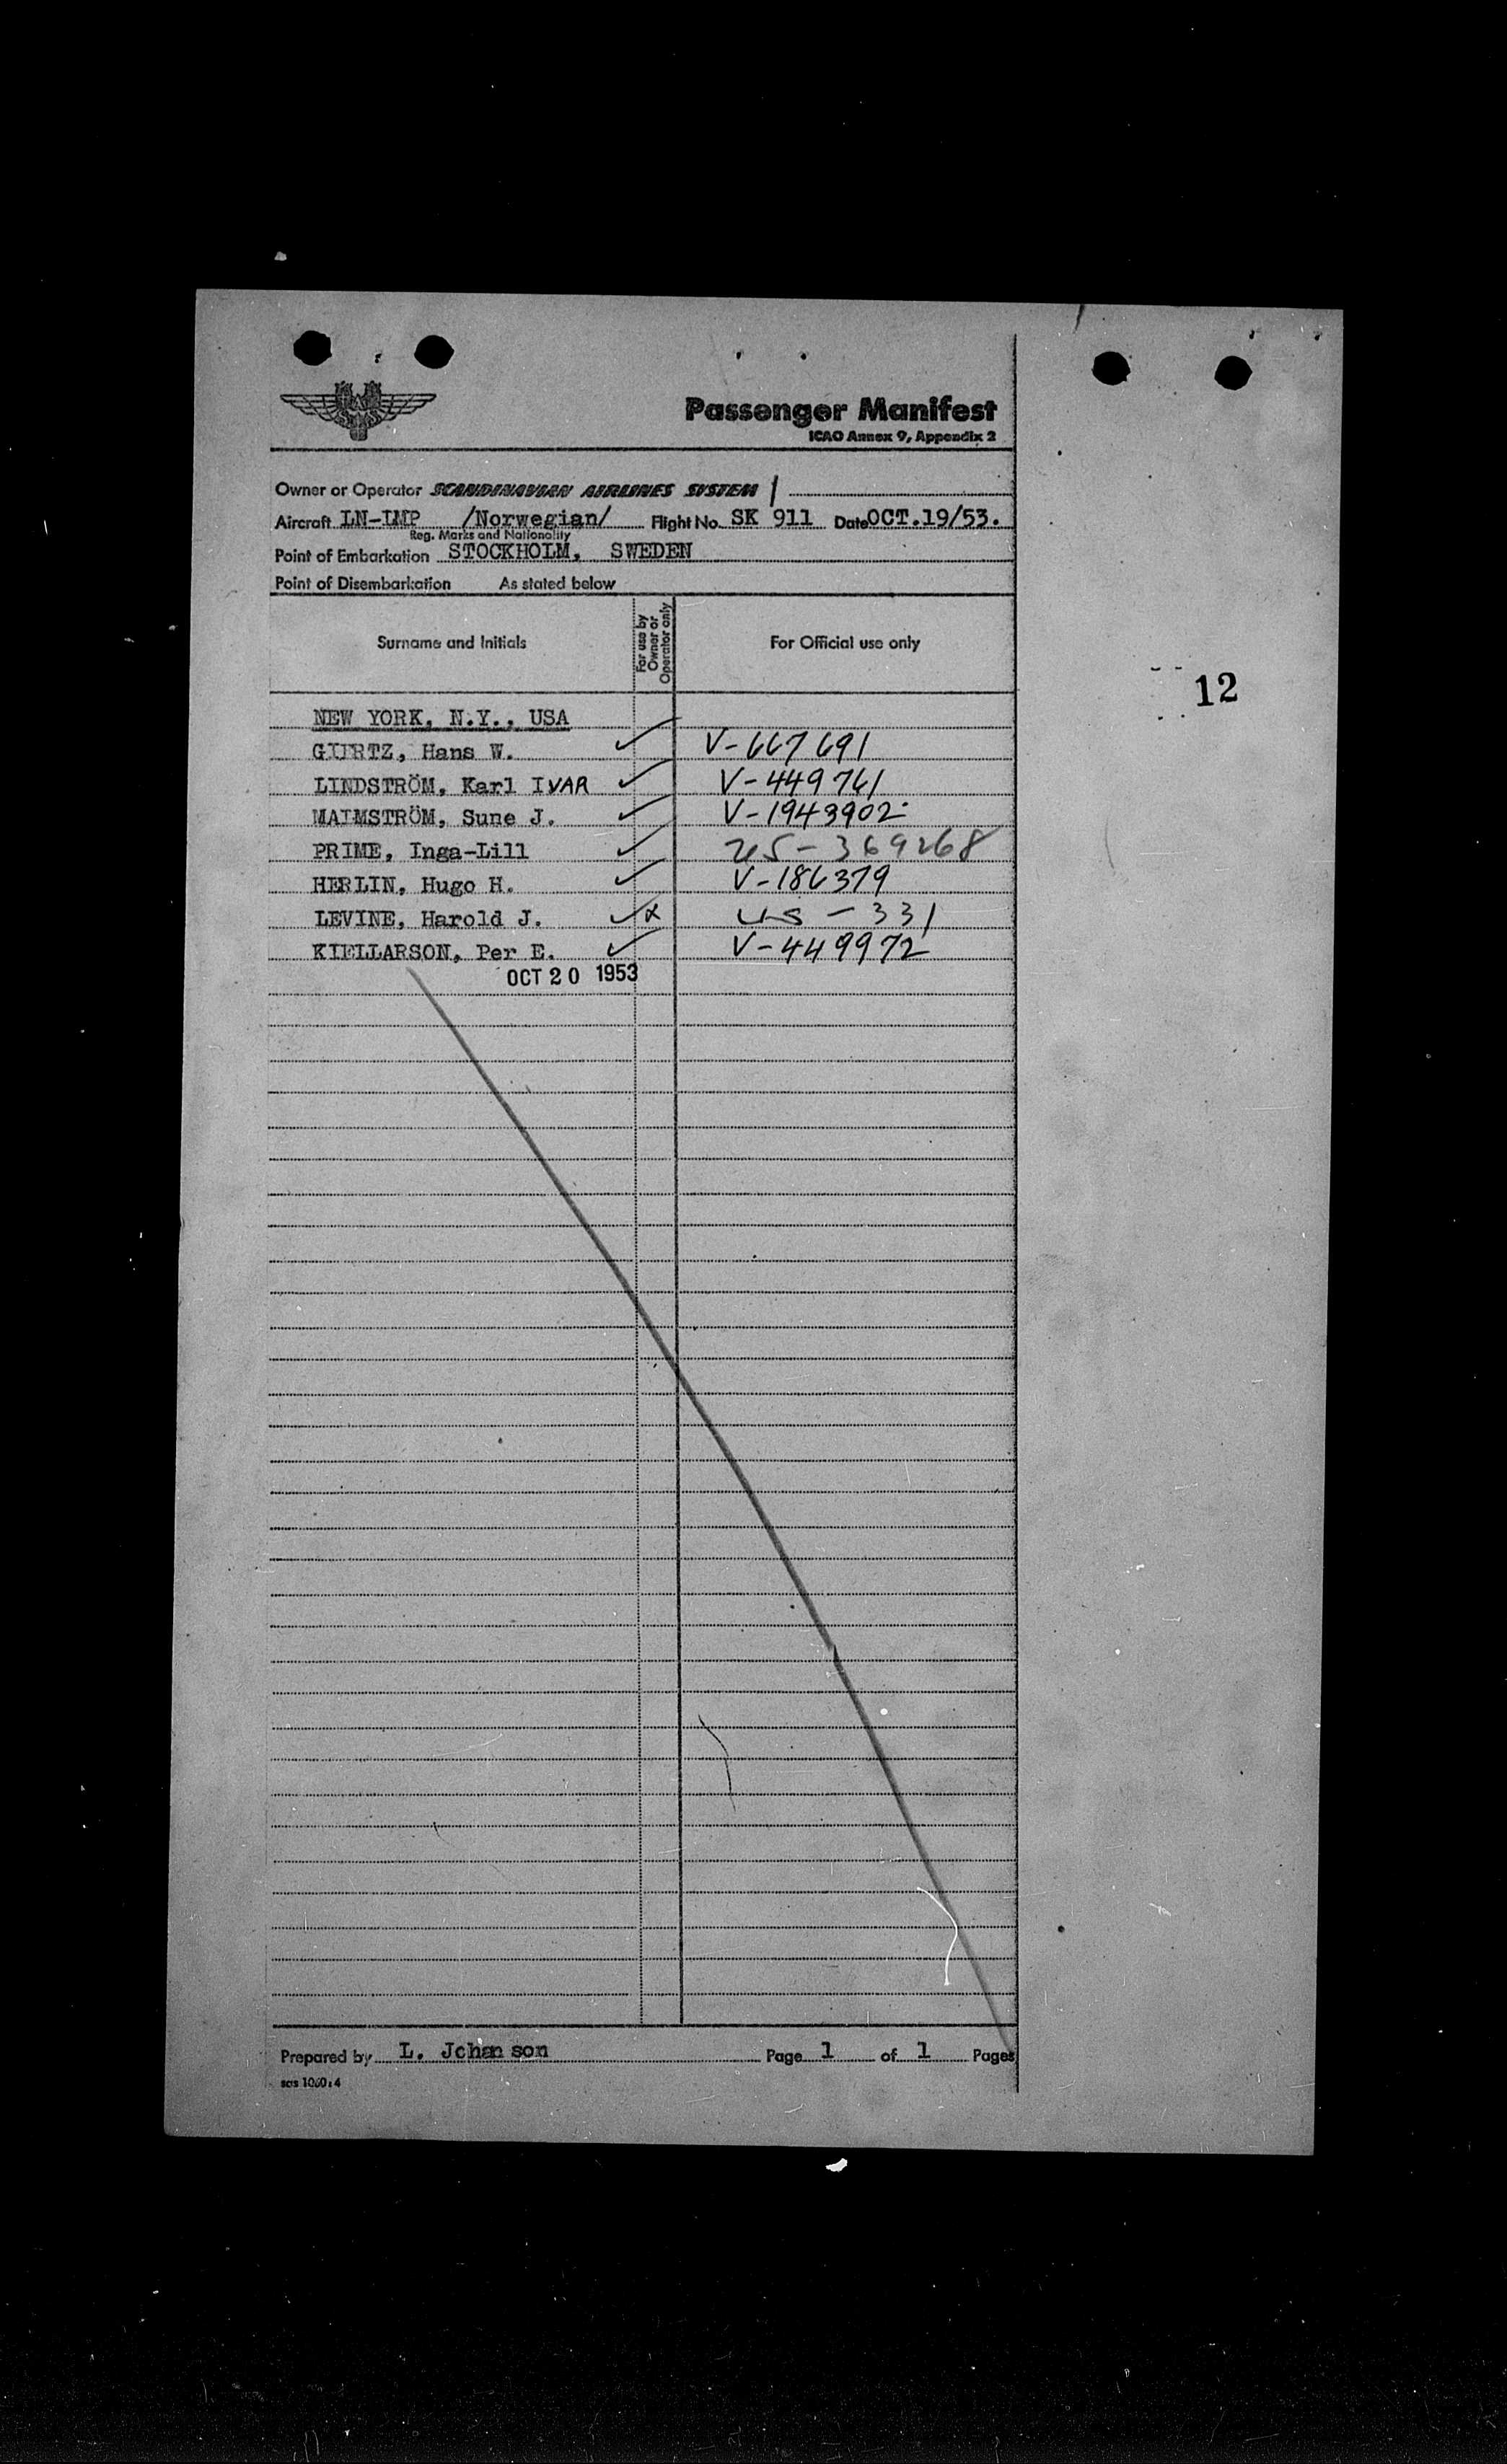 Passenger Manifest
ICAO Annex 9, Appendix 2
Owner or Operator SCANDINAVIAN AIRLINES SYSTEM
Aircraft LN-LMP /Norwegian/ Flight No. SK 911 Date OCT.19/53.
Reg. Marks and Nationality
Point of Embarkation STOCKHOLM, SWEDEN
Point of Disembarkation As stated below
Surname and Initials
For use by
Owner or
Operator only
For Official use only
12
NEW YORK, N.Y., USA
GIERTZ, Hans W. ✓ V-667691
LINDSTRÖM, Karl IVAR ✓ V-449761
MALMSTRÖM, Sune J. ✓ V-1943902
PRIME, Inga-Lill ✓ US-369268
HERLIN, Hugo H. ✓ V-186379
LEVINE, Harold J. ✓ x US-331
KIELLARSON, Per E. ✓ V-449972
OCT 20 1953
Prepared by L. Johanson Page 1 of 1 Pages
sas 1060:4